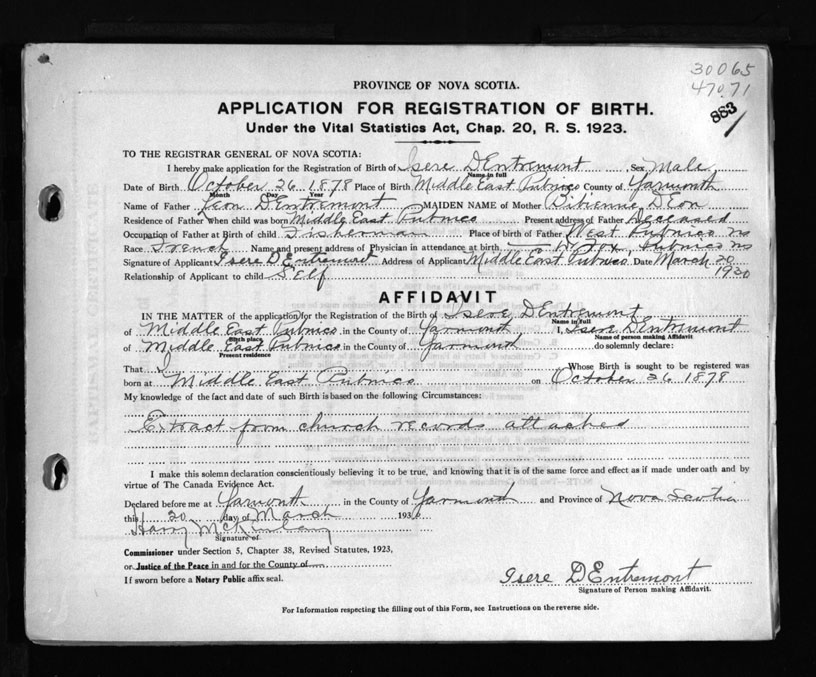 30065
47071
883
PROVINCE OF NOVA SCOTIA.
APPLICATION FOR REGISTRATION OF BIRTH.
Under the Vital Statistics Act, Chap. 20, R. S. 1923.
TO THE REGISTRAR GENERAL OF NOVA SCOTIA:
I hereby make application for the Registration of Birth of Isere DEntremont Sex Male
Name in full
Date of Birth October 26 1878 Place of Birth Middle East Pubnico County of Yarmouth
Month Day Year
Name of Father Leon DEntremont MAIDEN NAME of Mother Bibienne DEon
Residence of Father when child was born Middle East Pubnico Present address of Father Deceased
Occupation of Father at Birth of child Fisherman Place of birth of Father West Pubnico NS
Race French Name and present address of Physician in attendance at birth Pubnico NS
Signature of Applicant Isere DEntremont Address of Applicant Middle East Pubnico Date March 20
1930
Relationship of Applicant to child Self
AFFIDAVIT
IN THE MATTER of the application for the Registration of the Birth of Isere DEntremont
Name in full
of Middle East Pubnico in the County of Yarmouth I, Isere DEntremont
Birth place Name of person making Affidavit
of Middle East Pubnico in the County of Yarmouth do solemnly declare:
Present residence
That I Whose Birth is sought to be registered was
born at Middle East Pubnico on October 26 1878
My knowledge of the fact and date of such Birth is based on the following Circumstances:
Extract from church records attached
I make this solemn declaration conscientiously believing it to be true, and knowing that it is of the same force and effect as if made under oath and by
virtue of The Canada Evidence Act.
Declared before me at Yarmouth in the County of Yarmouth and Province of Nova Scotia
this 20 day of March 1930
Harry
Signature of
Commissioner under Section 5, Chapter 38, Revised Statutes, 1923,
or Justice of the Peace in and for the County of
If sworn before a Notary Public affix seal.
Isere DEntremont
Signature of Person making Affidavit.
For Information respecting the filling out of this Form, see Instructions on the reverse side.